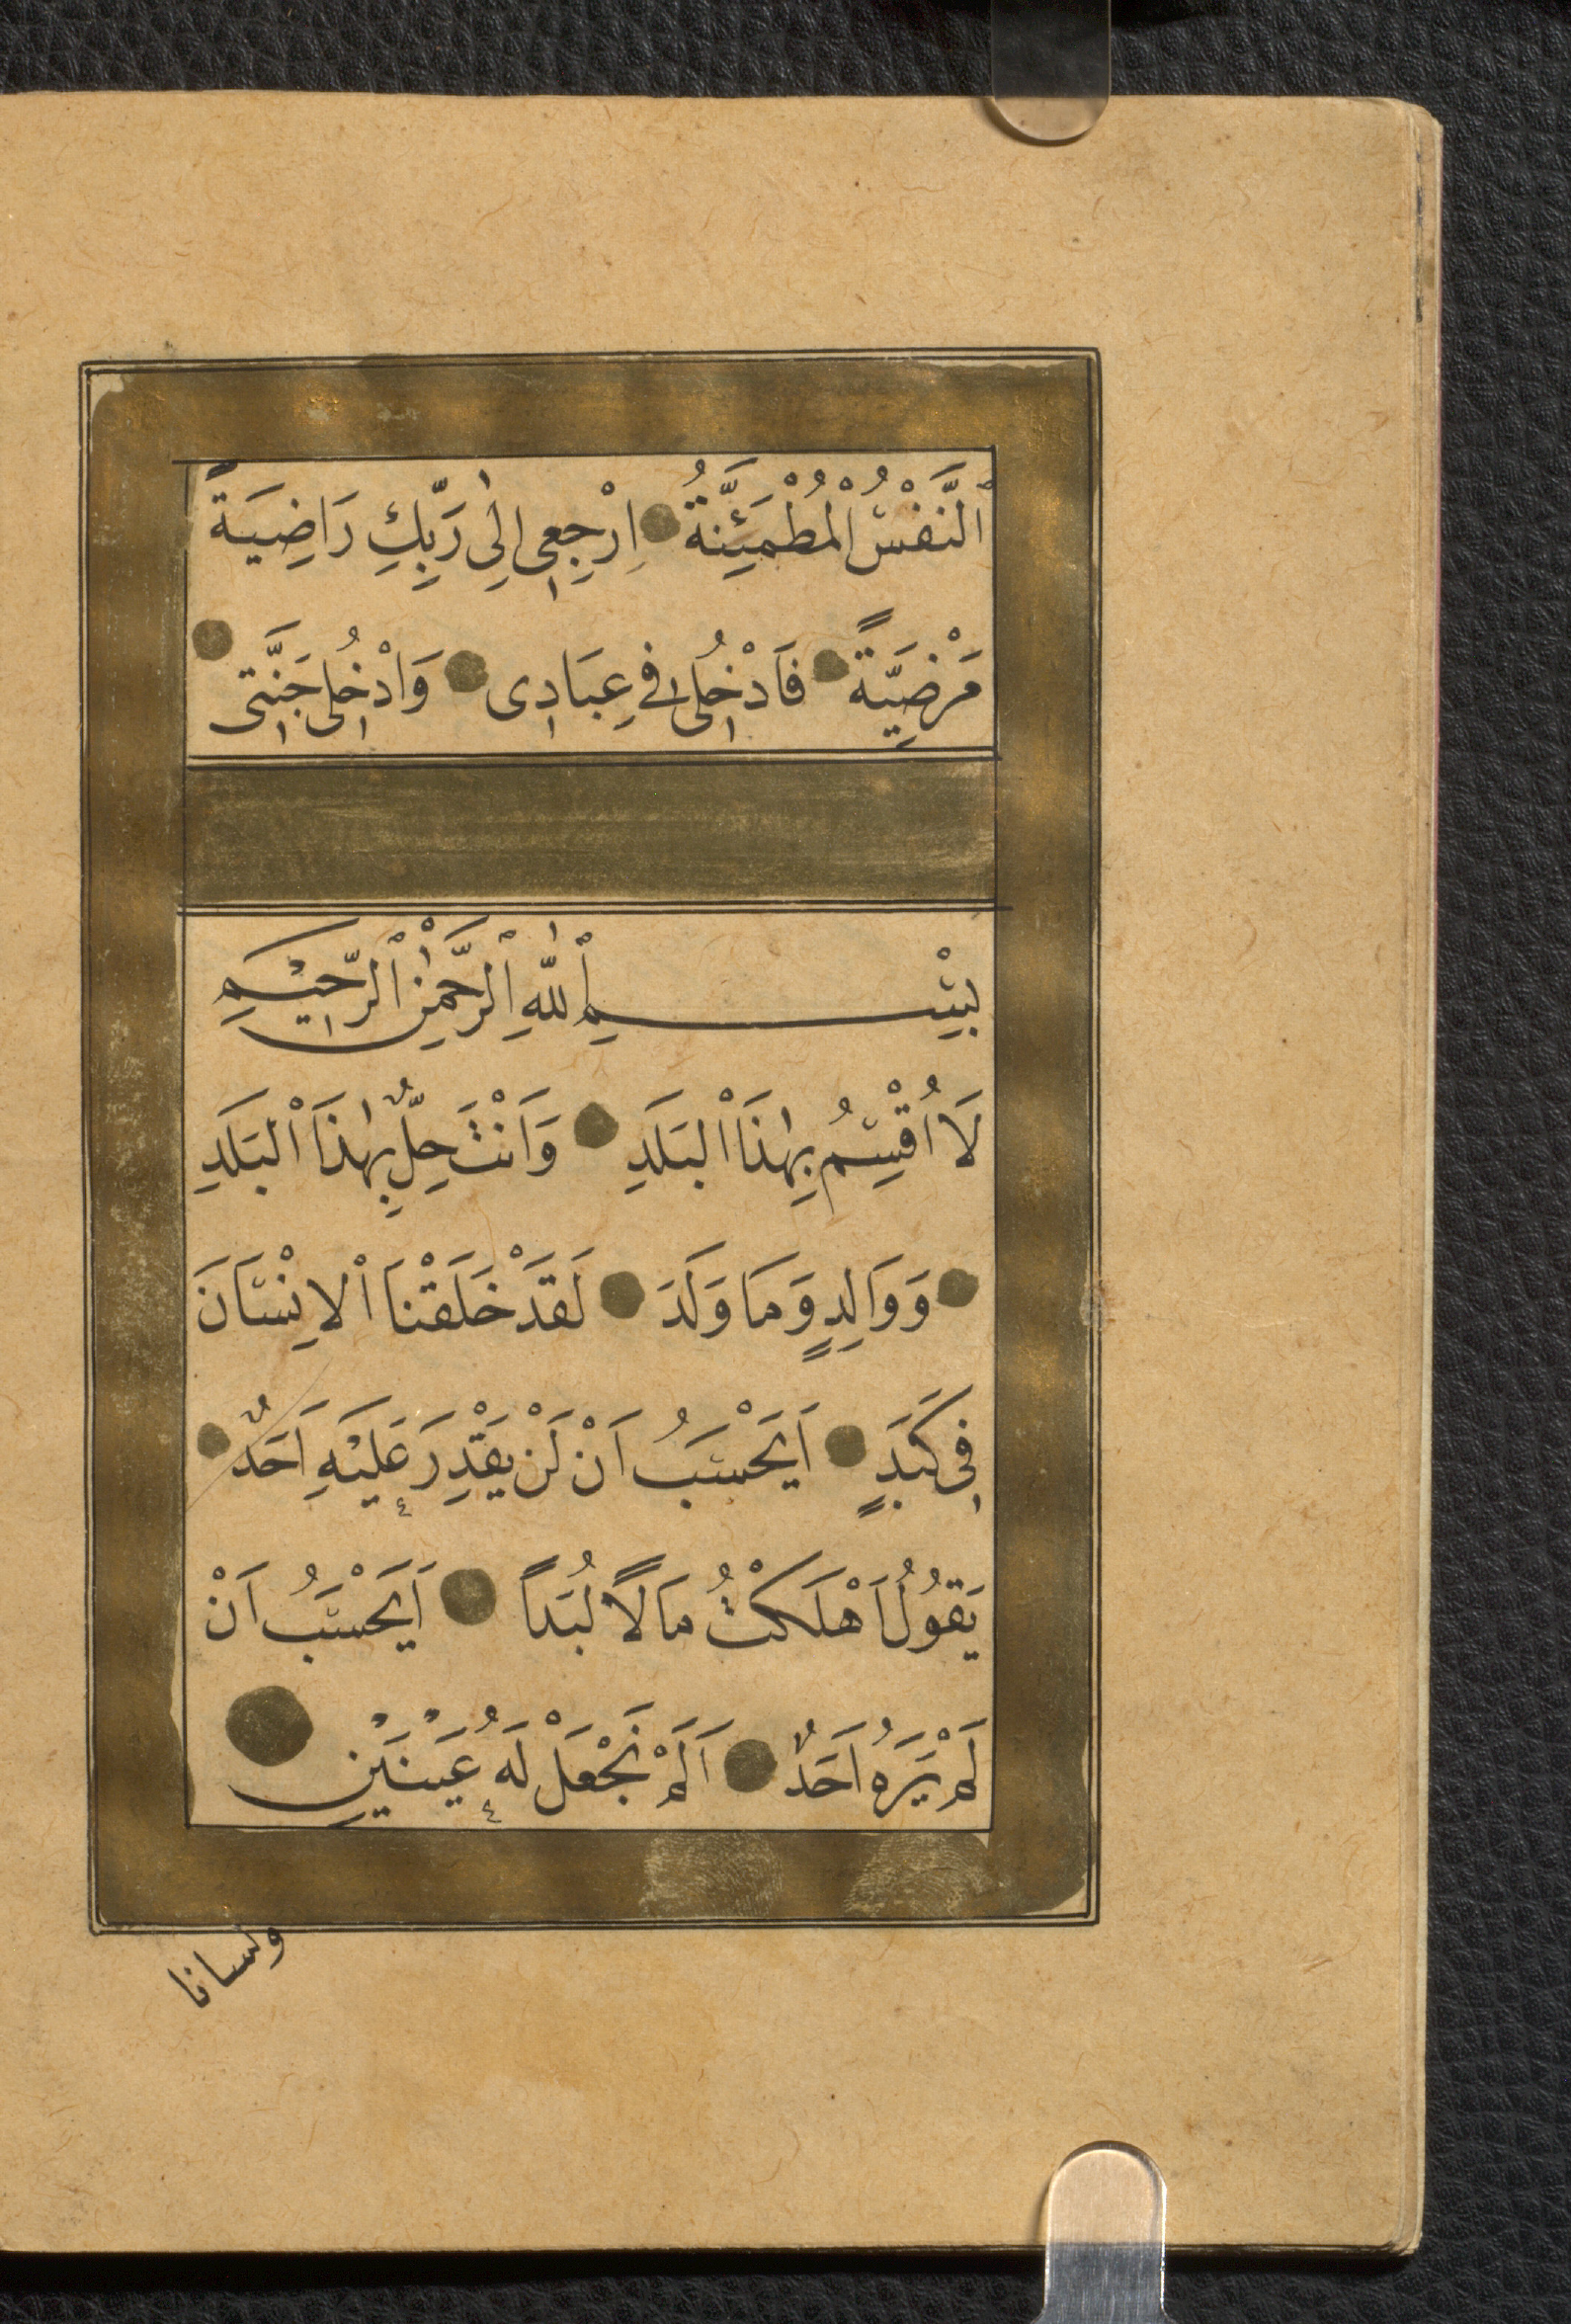 اَلنَّفْسُ الْمُطْمَئِنَّةُ اِرْجِعِى اِلٰى رَبِّكِ رَاضِيَةً
مَرْضِيَّةً فَادْخُلِى فِى عِبَادِى وَادْخُلِى جَنَّتِى
بِسْمِ اللّٰهِ الرَّحْمٰنِ الرَّحِيْمِ
لَا اُقْسِمُ بِهٰذَا الْبَلَدِ وَاَنْتَ حِلٌّ بِهٰذَا الْبَلَدِ
وَوَالِدٍ وَمَا وَلَدَ لَقَدْ خَلَقْنَا الْاِنْسَانَ
فِى كَبَدٍ اَيَحْسَبُ اَنْ لَنْ يَقْدِرَ عَلَيْهِ اَحَدٌ
يَقُوْلُ اَهْلَكْتُ مَالًا لُبَدًا اَيَحْسَبُ اَنْ
لَمْ يَرَهُ اَحَدٌ اَلَمْ نَجْعَلْ لَهُ عَيْنَيْنِ
ولسانا